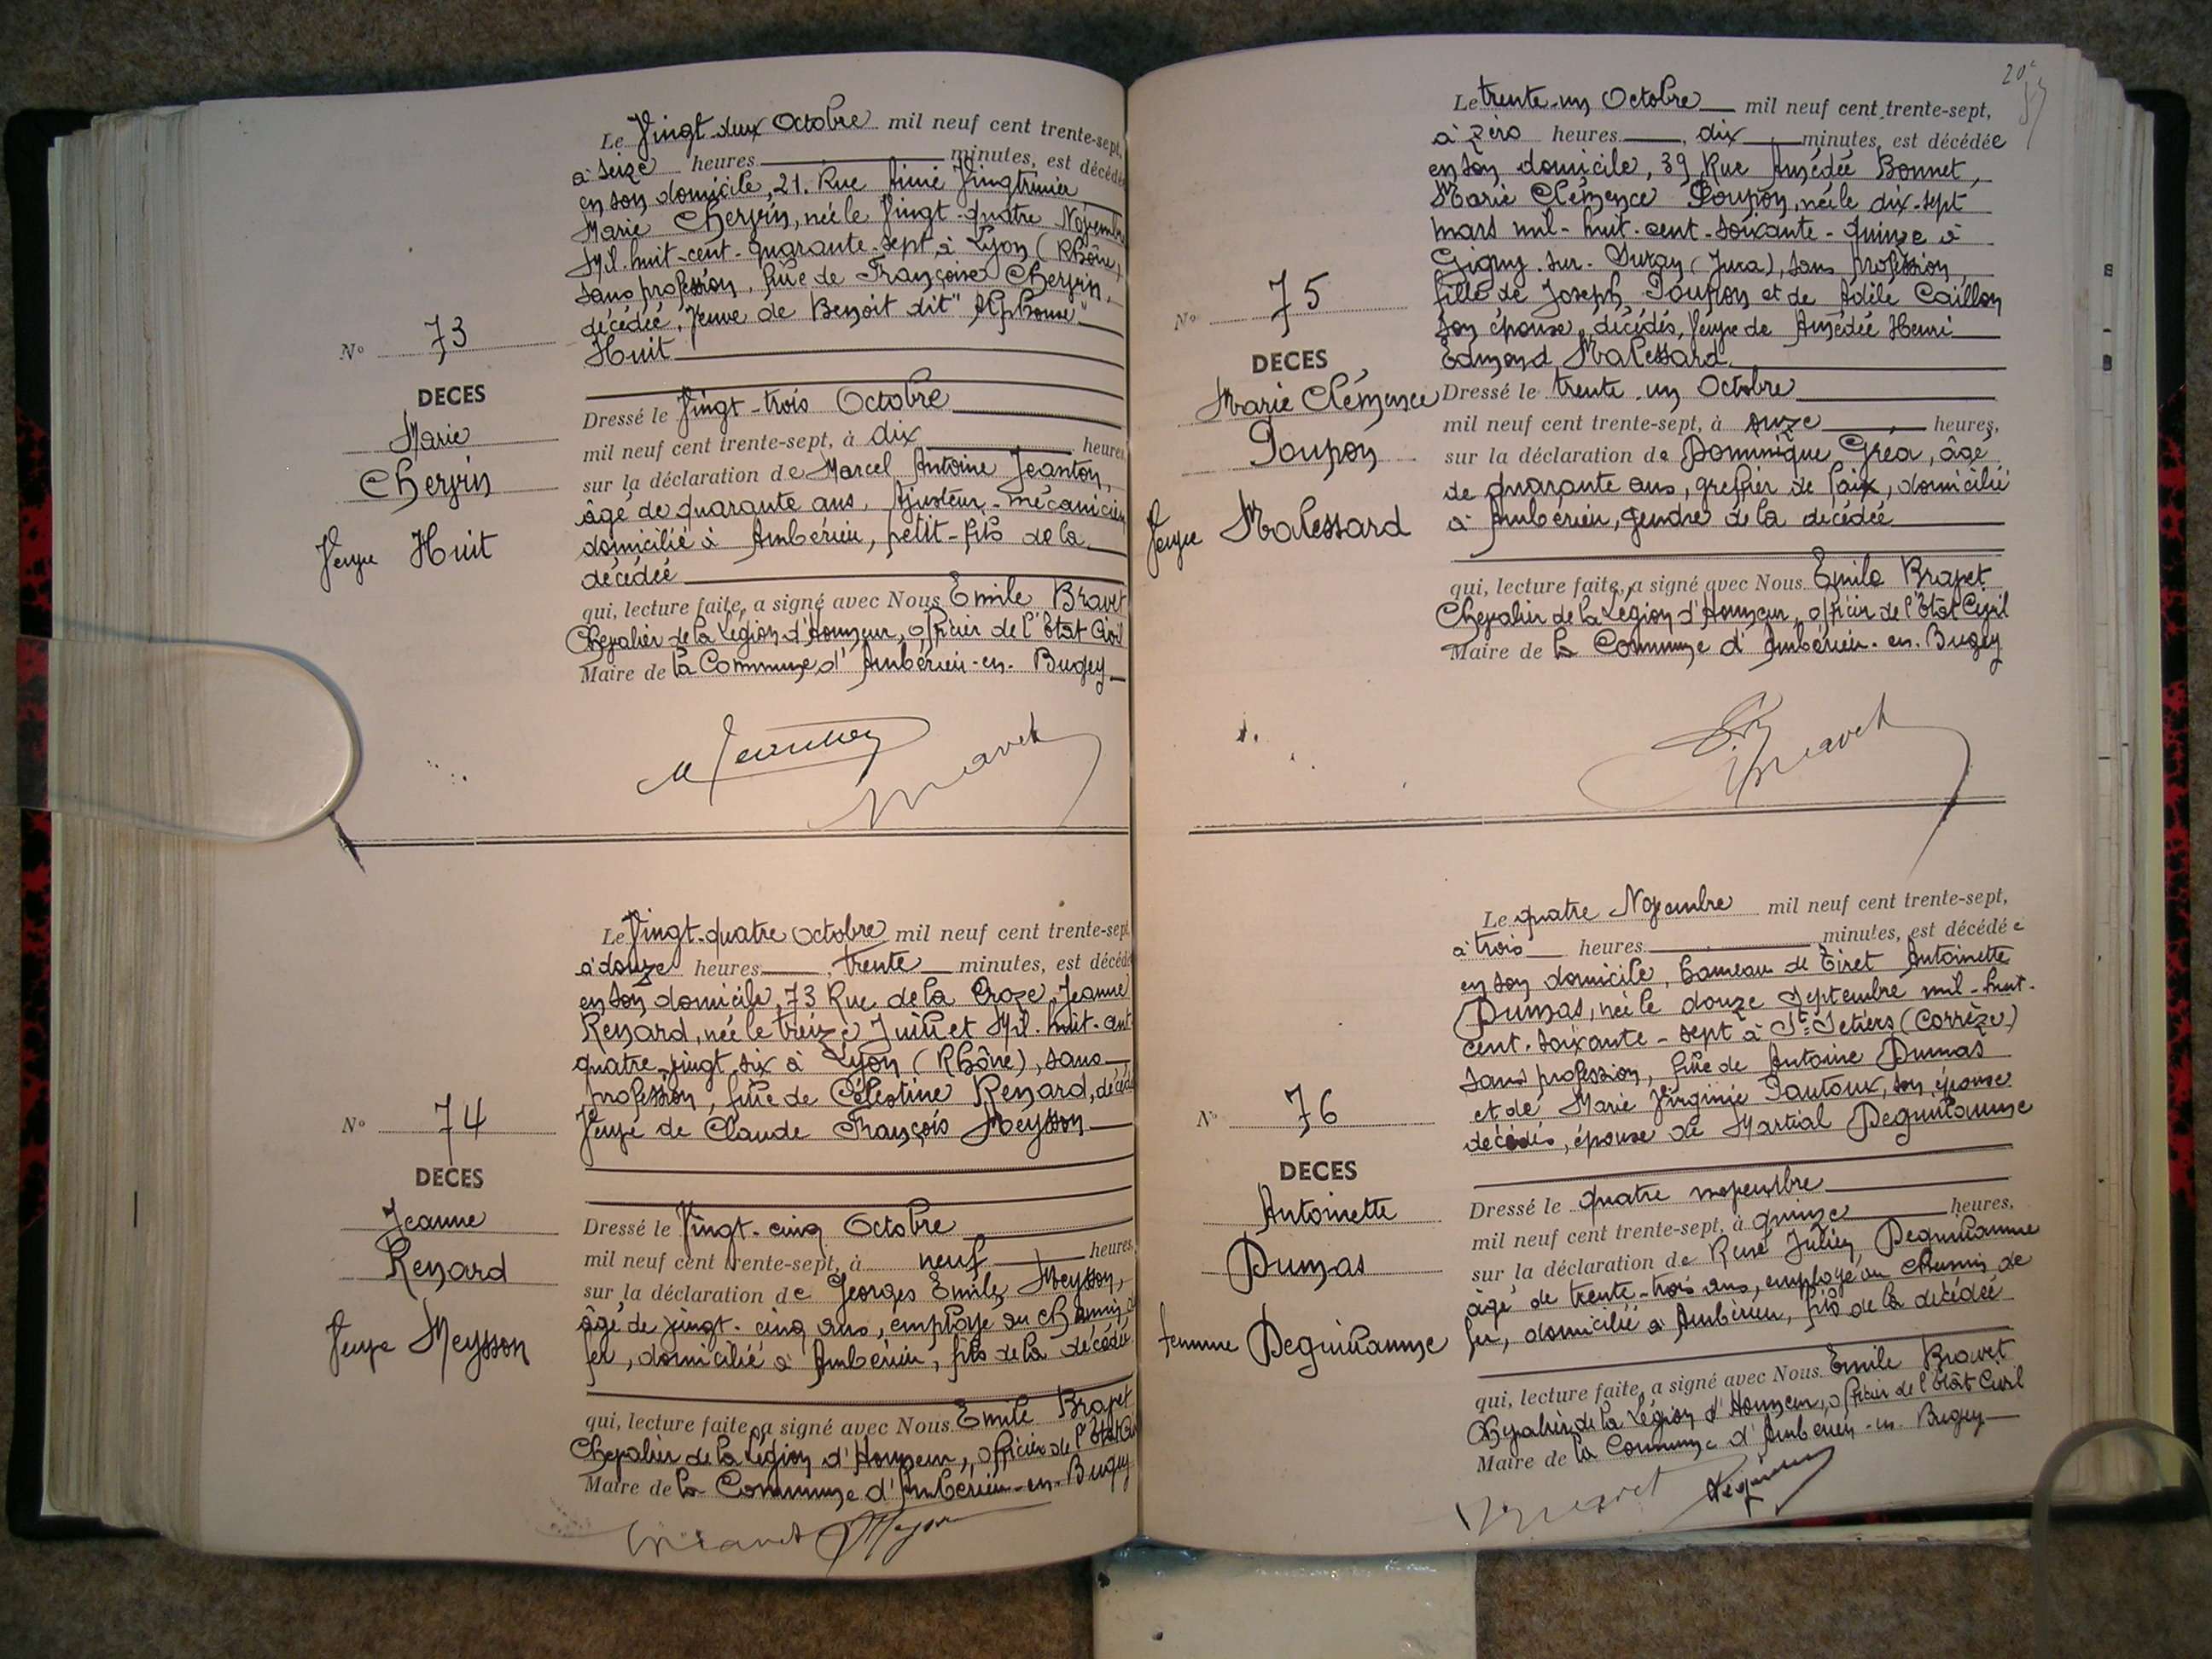 N° 73
DECES
Marie
Chervin
Veuve Huit
Le Vingt-deux Octobre mil neuf cent trente-sept,
à seize heures minutes, est décédée
en son domicile, 21. Rue Aimé Vingtrinier
Marie Chervin, née le Vingt-quatre Novembre
Mil-huit-cent-quarante-sept à Lyon (Rhône)
sans profession, fille de Françoise Chervin,
décédée, Veuve de Benoit dit "Alphonse"
Huit
Dressé le Vingt-trois Octobre
mil neuf cent trente-sept, à dix heures
sur la déclaration de Marcel Antoine Jeanton,
âgé de quarante ans, Ajusteur-mécanicien
domicilié à Ambérieu, petit-fils de la
décédée
qui, lecture faite, a signé avec Nous Emile Bravet
Chevalier de la Légion d'Honneur, officier de l'Etat Civil
Maire de la Commune d'Ambérieu-en-Bugey
M Jeanton Bravet
N° 74
DECES
Jeanne
Renard
Veuve Meysson
Le Vingt-quatre Octobre mil neuf cent trente-sept
à douze heures, trente minutes, est décédé
en son domicile, 73 Rue de la Croze, Jeanne
Renard, née le treize Juillet Mil-huit-cent
quatre-vingt-six à Lyon (Rhône), sans
profession, fille de Célestine Renard, décédé
Veuve de Claude François Meysson
Dressé le Vingt-cinq Octobre
mil neuf cent trente-sept, à neuf heures
sur la déclaration de Georges Emile Meysson,
âgé de vingt-cinq ans, employé au chemin de
fer, domicilié à Ambérieu, fils de la décédée
qui, lecture faite, a signé avec Nous Emile Bravet
Chevalier de la Légion d'Honneur, officier de l'Etat Civ
Maire de la Commune d'Ambérieu-en-Bugey
Bravet Meysson
N° 75
DECES
Marie Clémence
Poupon
Veuve Malessard
Le trente-un Octobre mil neuf cent trente-sept,
à zéro heures, dix minutes, est décédée
en son domicile, 39 Rue Amédée Bonnet,
Marie Clémence Poupon, née le dix-sept
mars mil-huit-cent-soixante-quinze à
Gigny-sur-Suran (Jura), sans profession,
fille de Joseph Poupon et de Adèle Caillon
son épouse, décédés, Veuve de Amédée Henri
Edmond Malessard
Dressé le trente-un Octobre
mil neuf cent trente-sept, à onze heures,
sur la déclaration de Dominique Gréa, âgé
de quarante ans, greffier de Paix, domicilié
à Ambérieu, gendre de la décédée
qui, lecture faite, a signé avec Nous Emile Bravet
Chevalier de la Légion d'Honneur, officier de l'Etat Civil
Maire de la Commune d'Ambérieu-en-Bugey
Bravet
N° 76
DECES
Antoinette
Dumas
femme Deguillaume
Le quatre Novembre mil neuf cent trente-sept,
à trois heures minutes, est décédée
en son domicile, hameau de Tiret Antoinette
Dumas, née le douze Septembre mil-huit-
cent-soixante-sept à St Setiers (Corrèze)
sans profession, fille de Antoine Dumas
et de Marie Virginie Pautoux, son épouse
décédés, épouse de Martial Deguillaume
Dressé le quatre novembre
mil neuf cent trente-sept, à quinze heures,
sur la déclaration de René Julien Deguillaume
âgé de trente-trois ans, employé au chemin de
fer, domicilié à Ambérieu, fils de la décédée
qui, lecture faite, a signé avec Nous Emile Bravet
Chevalier de la Légion d'Honneur, officier de l'Etat Civil
Maire de la Commune d'Ambérieu-en-Bugey
Bravet